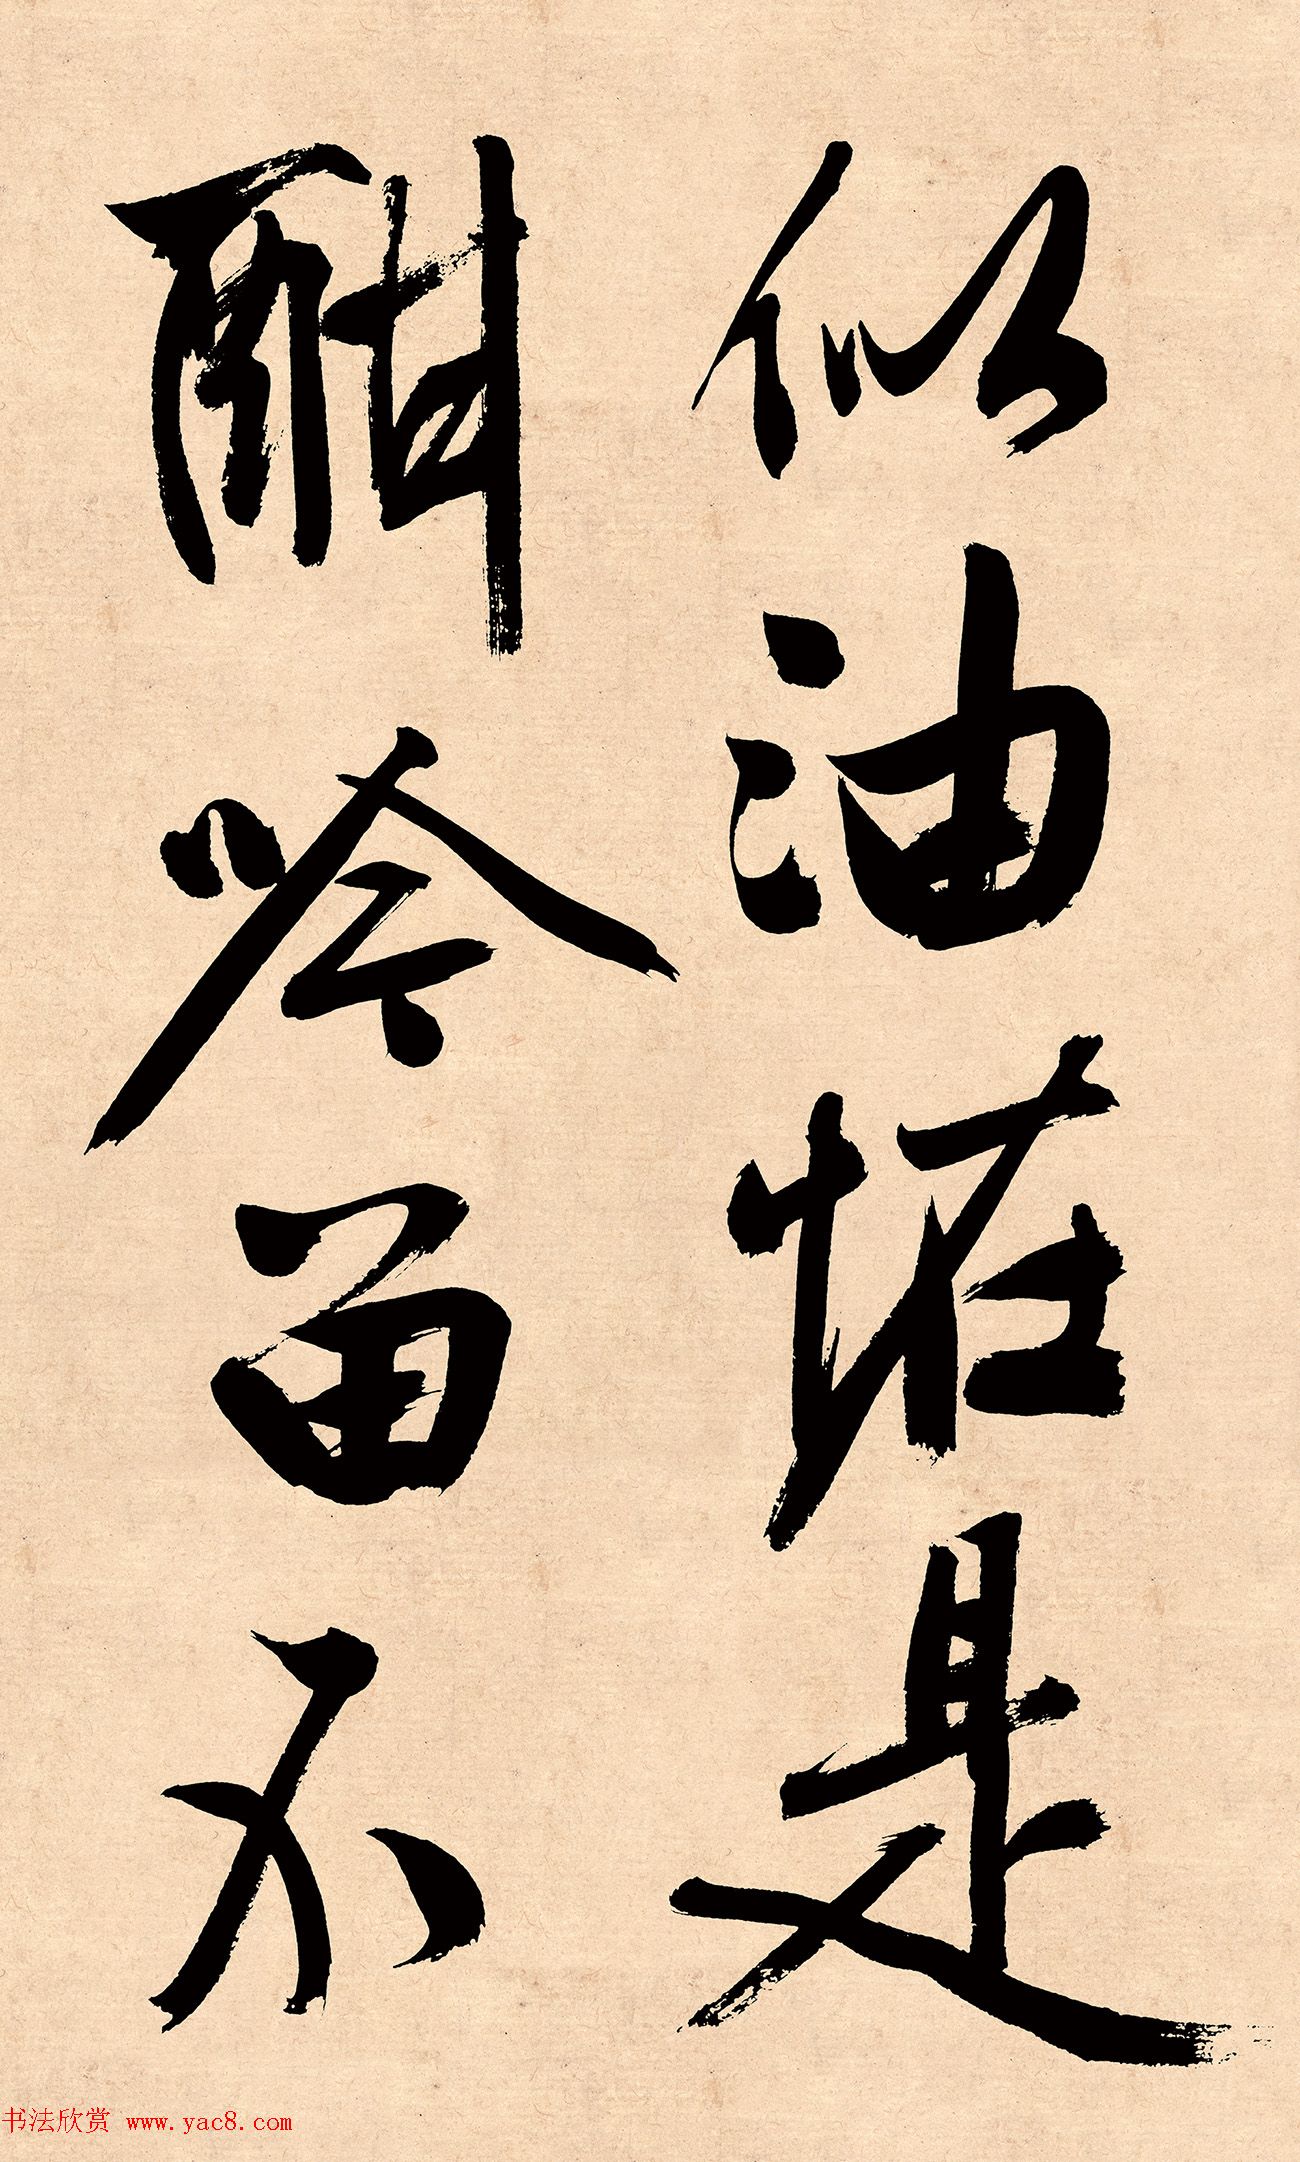 似油怪是
酣吟留不
书法欣赏 www.yac8.com